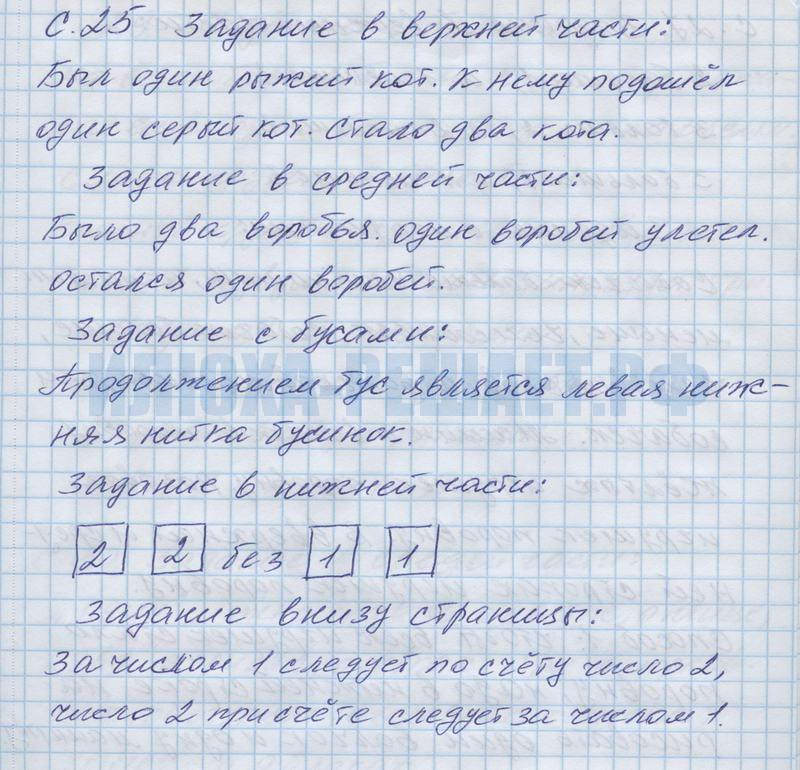 С. 25 Задание в верхней части:
Был один рыжий кот. К нему подошёл
один серый кот. Стало два кота.
Задание в средней части:
Было два воробья. Один воробей улетел.
Остался один воробей.
Задание с бусами:
ИЛЮХА-РЕШАЕТ.РФ
Продолжением бус является левая ниж-
няя нитка бусинок.
Задание в нижней части:
2 2 без 1 1
Задание внизу страницы:
За числом 1 следует по счёту число 2,
число 2 при счёте следует за числом 1.